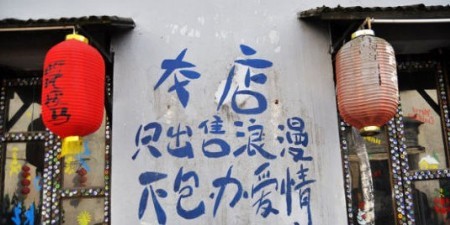 本店
只出售浪漫
不包办爱情